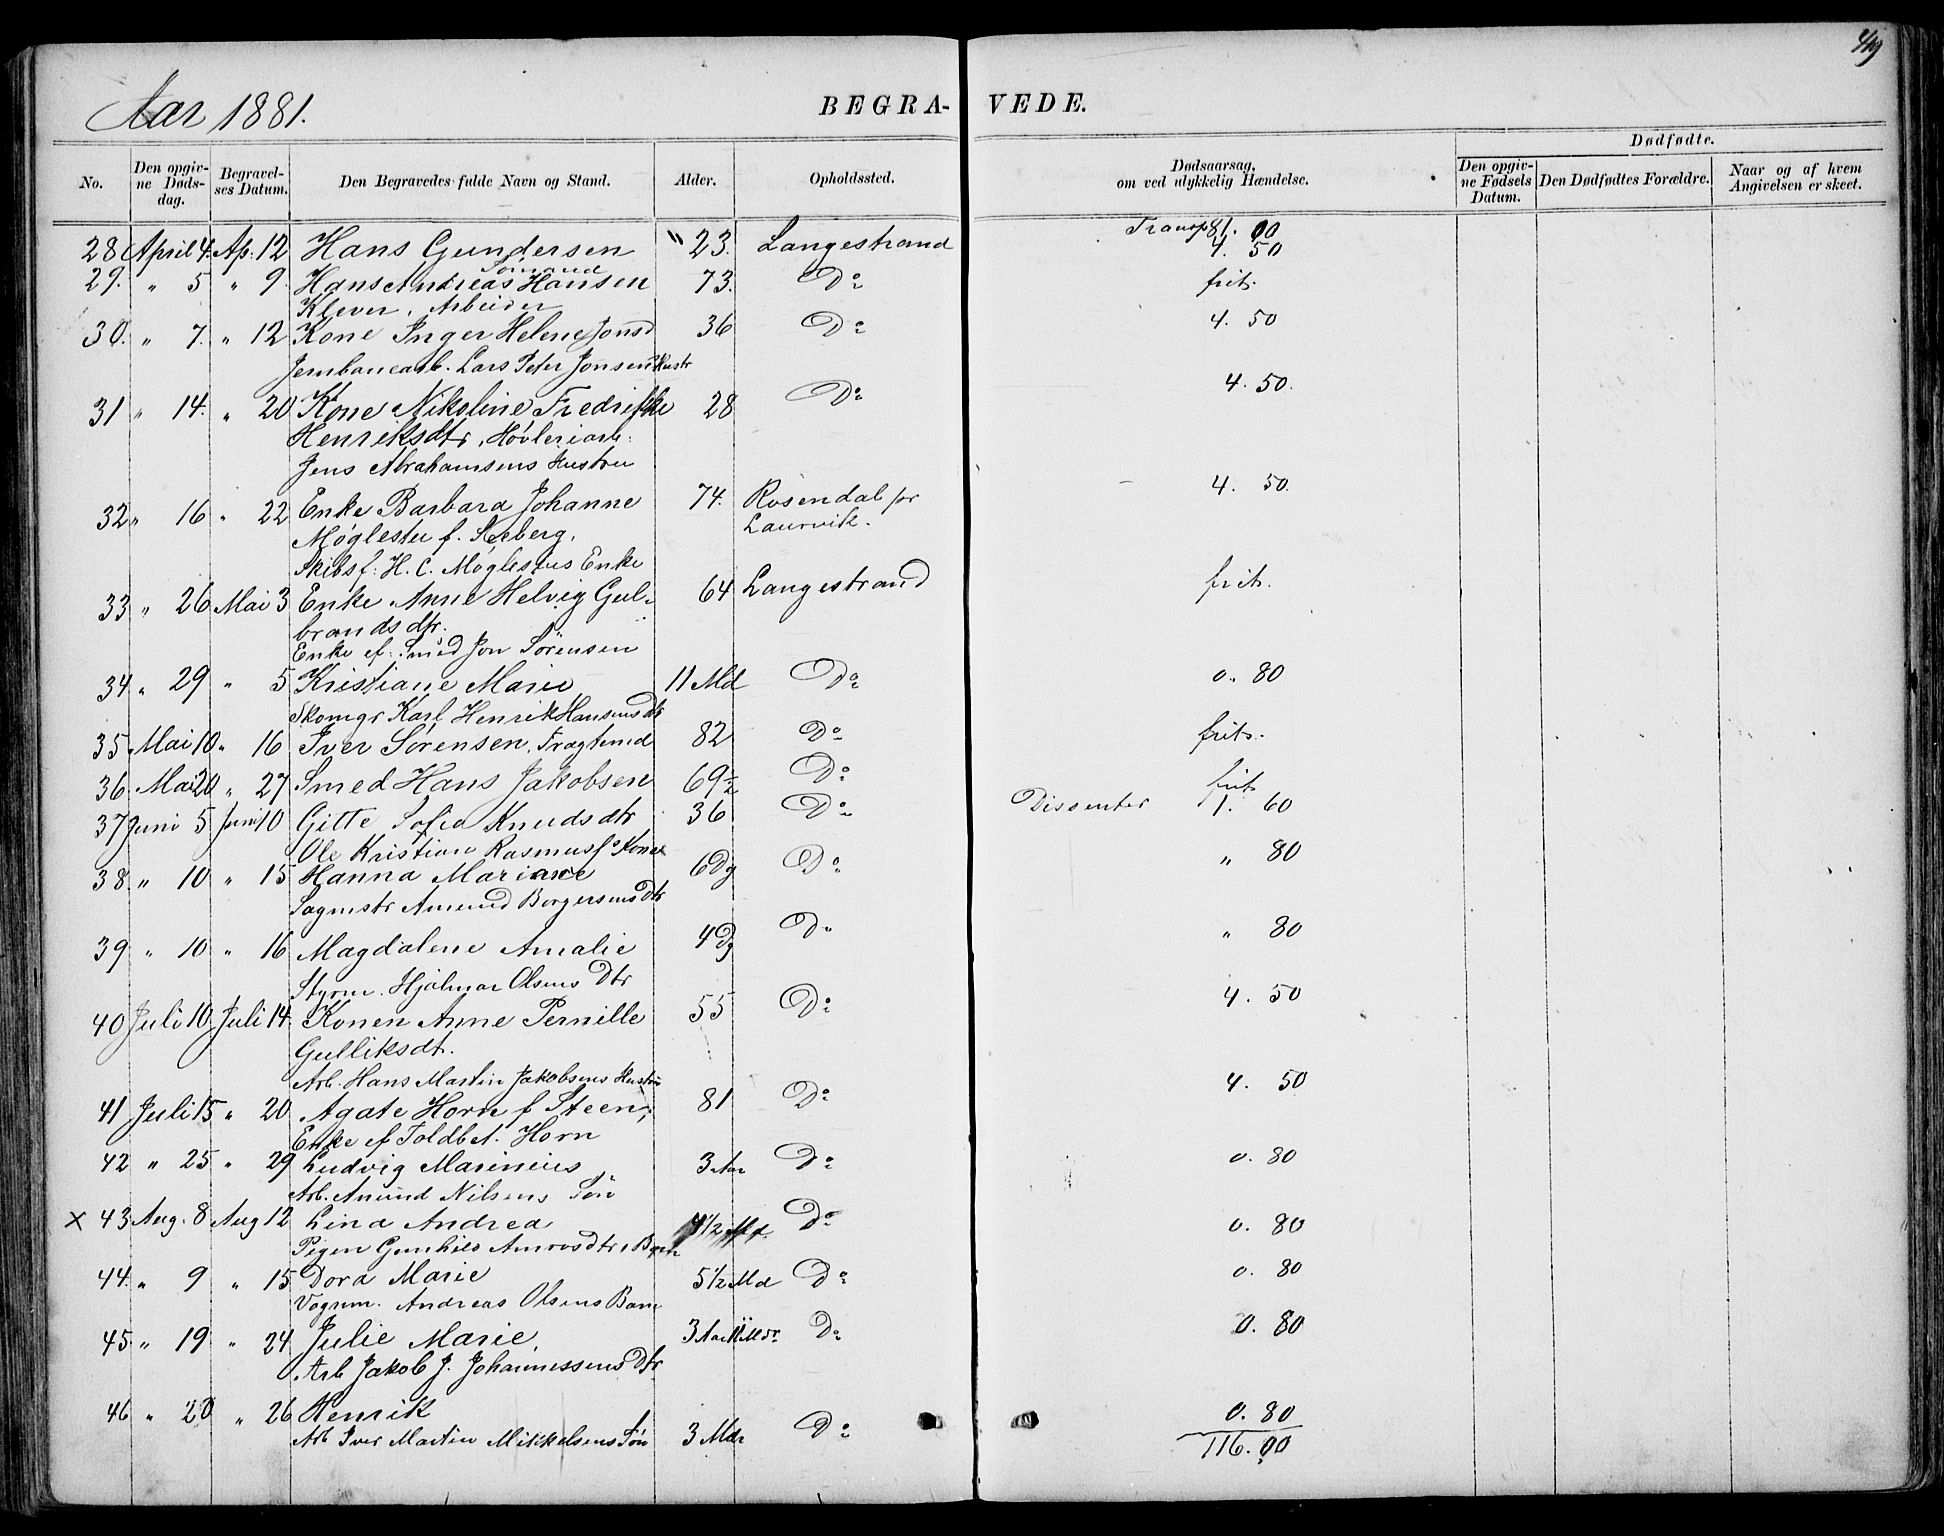 449
Aar 1881.
BEGRA-VEDE.
No. Den opgivne Dødsdag. Begravelses Datum. Den Begravedes fulde Navn og Stand. Alder. Opholdssted. Dødsaarsag, om ved ulykkelig Hændelse. Dødfødte. Den opgivne Fødsels Datum. Den Dødfødtes Forældre. Naar og af hvem Angivelsen er skeet.
Transp 81. 00
28 April 4. Ap. 12 Hans Gundersen " 23. Langestrand 4. 50
Sømand
29. " 5 " 9. Hans Andreas Hansen 73. Do frit.
Klever, Arbeider
30. " 7. " 12 Kone Inger Helene Jonsd 36 Do 4. 50
Jernbanearb. Lars Peter Jonsens Hustr
31 " 14. " 20 Kone Nikoline Fredrikke 28 Do 4. 50.
Henriksdtr, Høvleriarb.
Jens Abrahamsens Hustru
32 " 16 " 22 Enke Barbara Johanne 74. Rosendal pr 4. 50.
Møglestu f. Seeberg, Laurvik.
Skibsf. H. C. Møglestues Enke
33 " 26 Mai 3 Enke Anne Helvig Gul- 64 Langestrand frit.
brandsdtr.
Enke ef. Smed Jon Sørensen
34 " 29 " 5 Kristiane Marie 11 Md Do 0. 80
Skomgr Karl Henrik Hansens Dtr
35 Mai 10 " 16 Iver Sørensen, Fragtemd 82 Do frit.
36 Mai 20 " 27 Smed Hans Jakobsen 69½ Do frit
37 Juni 5 Juni 10 Gitte Sofie Knudsdtr 36 Do Dissenter 1. 60
Ole Kristian Rasmuss. Kone
38 " 10 " 15 Hanna Mariane 6 Dg Do " 80
Sagmstr Amund Borgersens Dtr
39 " 10 " 16 Magdalene Amalie 4 Dg Do " 80
Styrm. Hjalmar Olsens Dtr
40 Juli 10 Juli 14 Konen Anne Pernille 55 Do 4. 50
Gulliksdt.
Arb. Hans Martin Jakobsens Hustru
41 Juli 15 " 20 Agate Horn f Steen, 81 Do 4. 50
Enke ef Toldbet. Horn
42 " 25 " 29 Ludvig Marinius 3 Aar Do 0. 80
Arb. Amund Nilsens Søn
x 43 Aug. 8 Aug 12 Lina Andrea 4½ Md. Do 0. 80
Pigen Gunhild Amundsdtrs Barn
44. " 9 " 15 Dora Marie 5½ Md Do 0. 80
Vognm. Andreas Olsens Barn
45 " 19 " 24 Julie Marie, 3 Aar 11 Mdr Do 0. 80
Arb Jakob J. Johannessens Dtr
46 " 20 " 26 Henrik 0. 80
Arb Iver Martin Mikkelsens Søn 3 Mdr Do
116. 00